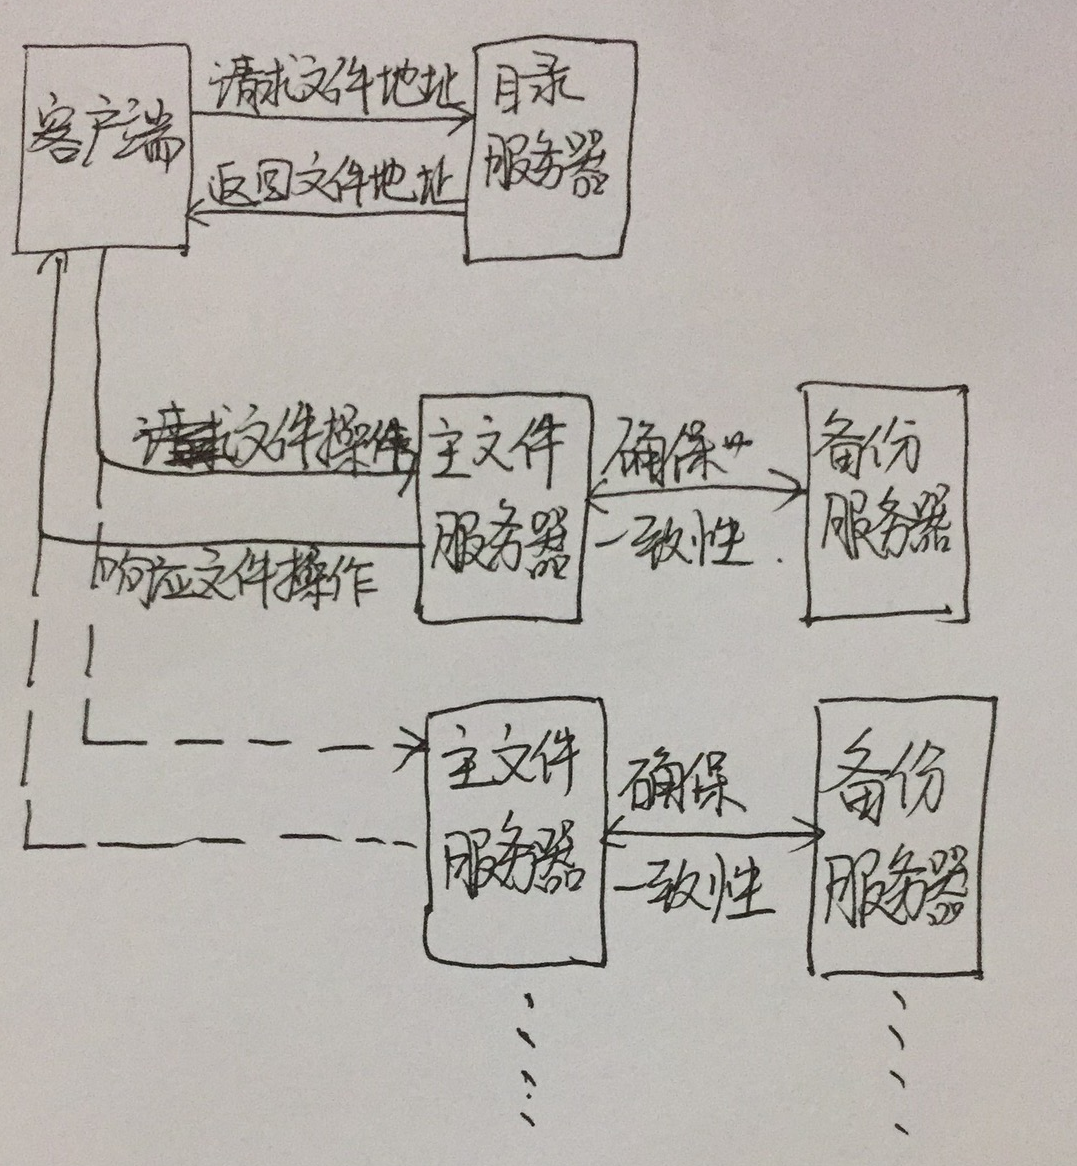 客户端
请求文件地址
返回文件地址
目录
服务器
请求文件操作
响应文件操作
主文件
服务器
确保
一致性.
备份
服务器
主文件
服务器
确保
一致性
备份
服务器